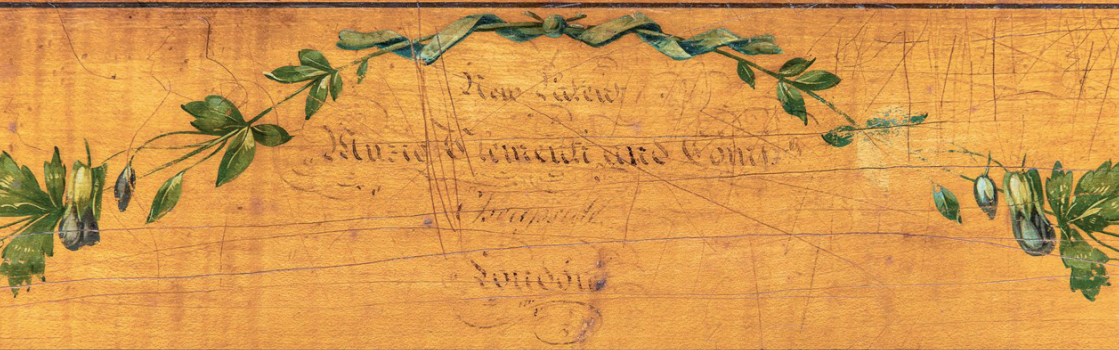 New Patent
Muzio Clementi and Comp.y
Cheapside
London